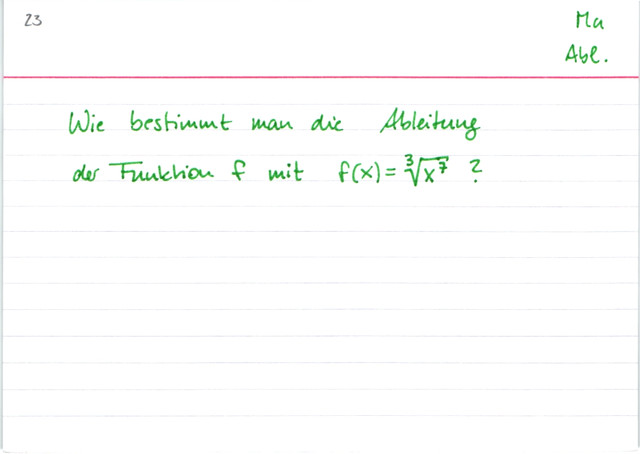 23
Ma
Abl.
Wie bestimmt man die Ableitung
der Funktion f mit f(x) = ∛x⁷ ?